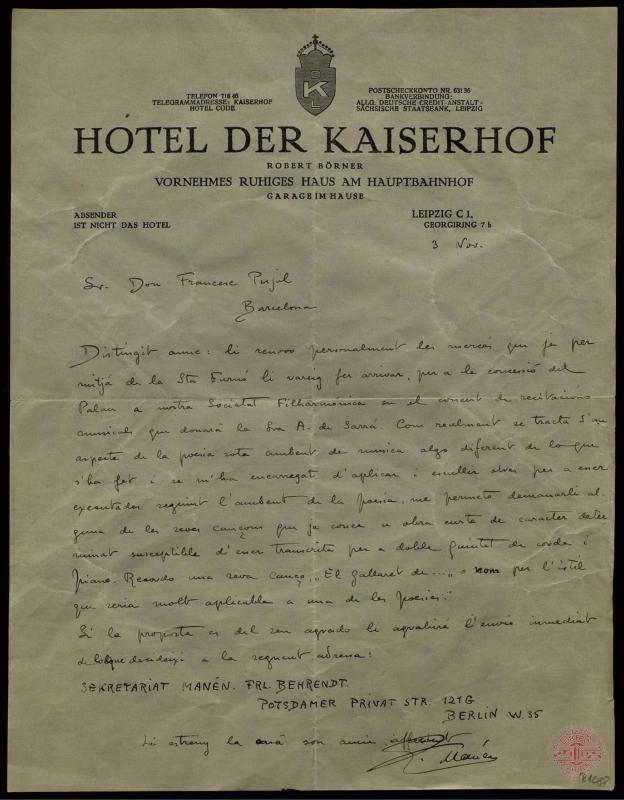 TELEFON 718 46
TELEGRAMMADRESSE: KAISERHOF
HOTEL CODE
K
L
POSTSCHECKKONTO NR. 631 36
BANKVERBINDUNG:
ALLG. DEUTSCHE CREDIT-ANSTALT -
SÄCHSISCHE STAATSBANK, LEIPZIG
HOTEL DER KAISERHOF
ROBERT BÖRNER
VORNEHMES RUHIGES HAUS AM HAUPTBAHNHOF
GARAGE IM HAUSE
ABSENDER
IST NICHT DAS HOTEL
LEIPZIG C 1,
GEORGIRING 7 b
3 Nov.
Sr. Don Francesc Pujol
Barcelona
Distingit amic: li renovo personalment les merces que ja per
mitjá de la Sta Furnó li vareig fer arrivar, per a la concesió del
Palau a nostra Societat Filharmónica en el concert de recitacions
musicals que donará la Sra A. de Sarrá. Com realment se tracta d'un
aspecte de la poesia sota ambent de musica algo diferent de lo que
s'ha fet i se m'ha encarregat d'aplicar i escullir obres per a esser
executades seguint l'ambent de la poesia, me permeto demanarli al-
guna de les seves cançons que ja conec u obra curta de caracter deter
minat susceptible d'esser transcrita per a doble quintet de corda i
piano. Recordo una seva canço „El gallaret de...„ o nom per l'istil
que seria molt aplicable a una de les poesies.
Si la proposta es del seu agrado li agrahiré l'envio inmediat
de lo que decideixi a la seguent adresa:
SEKRETARIAT MANÉN. FRL. BEHRENDT.
POTSDAMER PRIVAT STR. 121G
BERLIN W. 35
Li estreny la má son amic
Manén